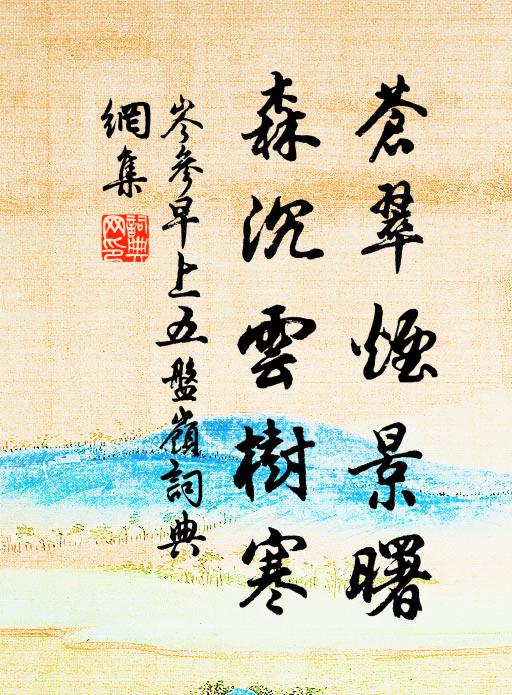 蒼翠煙景曙
森沉雲樹寒
岑參早上五盤嶺詞典
網集
詞典網印